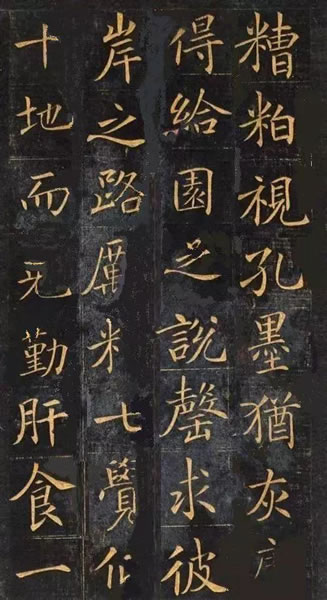 糟粕視孔墨猶灰
得給園之說罄求彼
岸之路厲米七覺
十地而旡勤肝食一